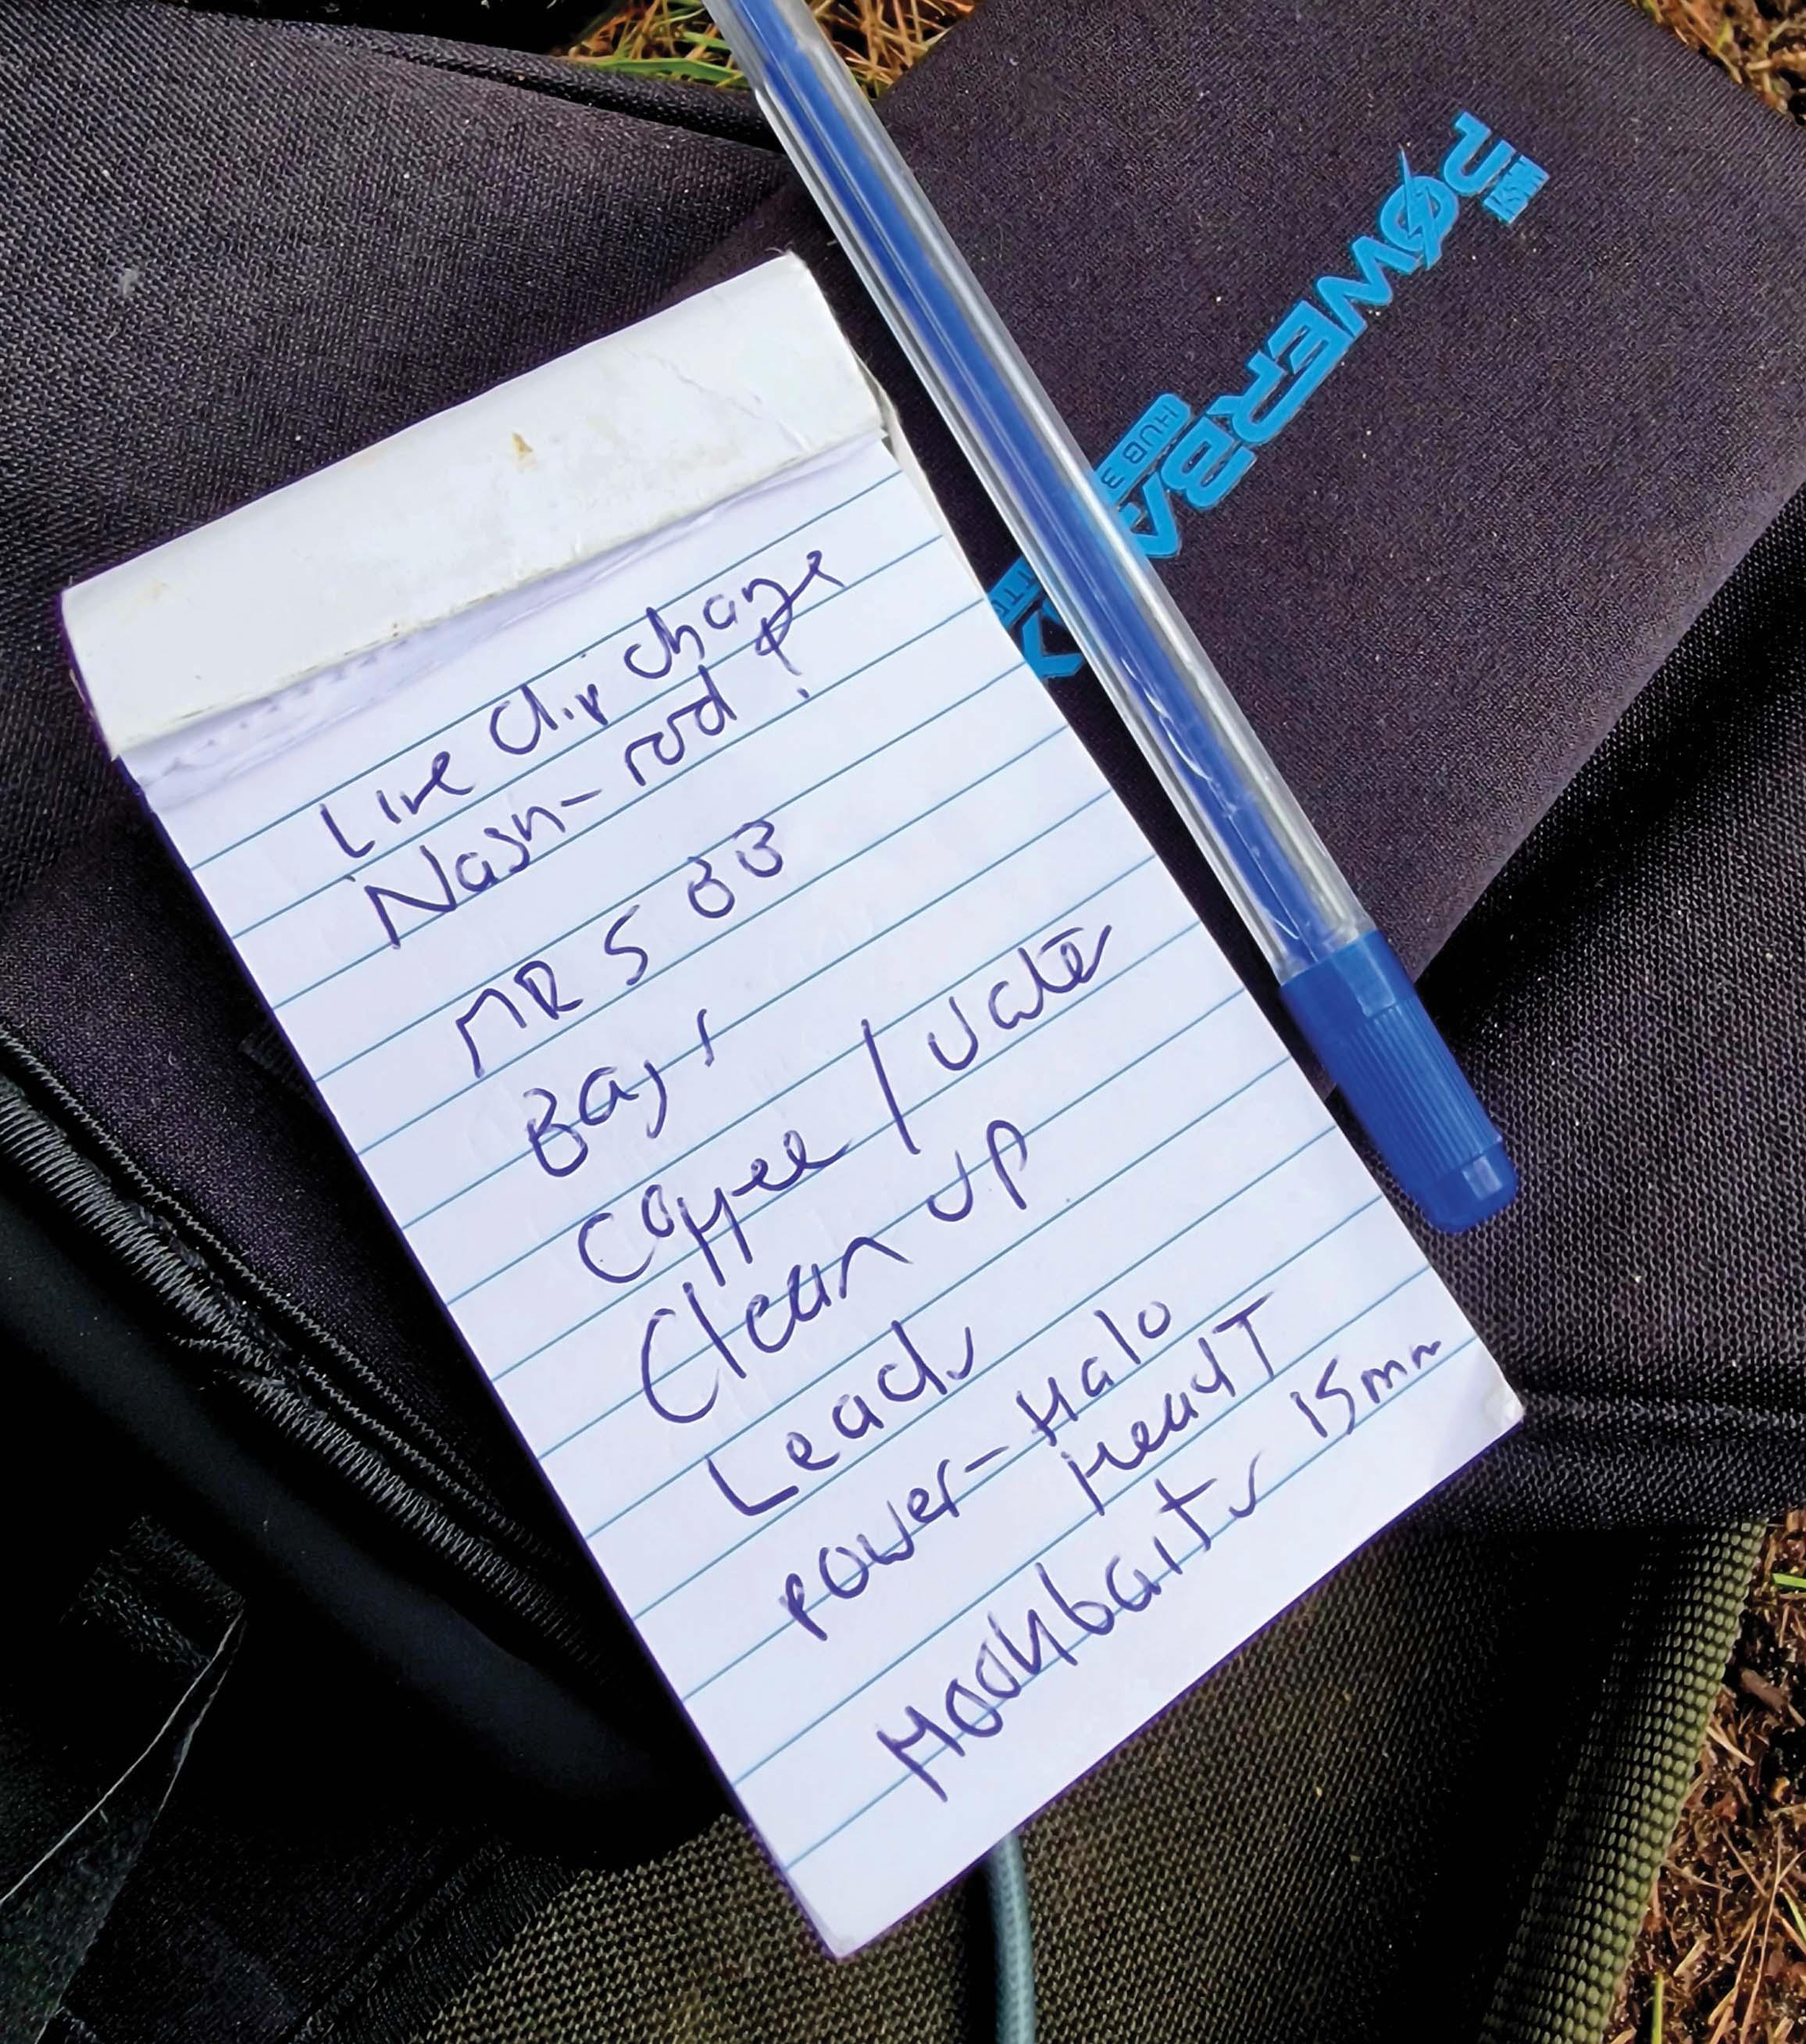 Line Clip change
Nash-rod ?
MRS BB
Bags
Coffee / Water
Clean up
Leads
Power-Halo
HeadT
Hookbaits 15mm
POWERBA
HUB 3